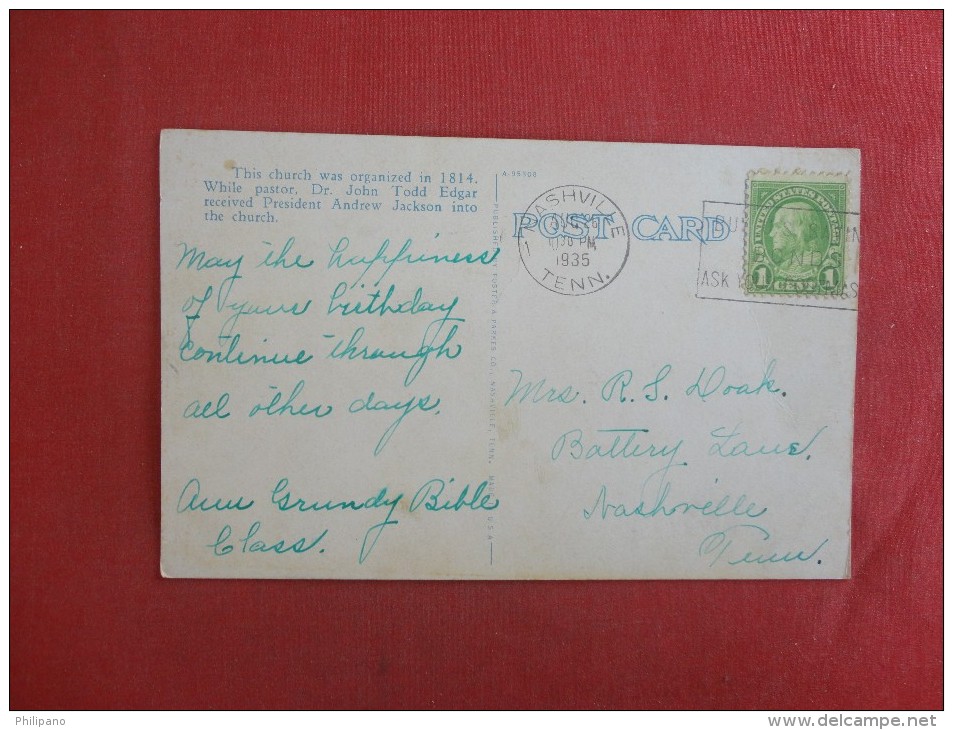 This church was organized in 1814.
While pastor, Dr. John Todd Edgar
received President Andrew Jackson into
the church.
May the happiness
of your birthday
continue through
all other days.
Ann Grundy Bible
Class.
A-95908
PUBLISHED BY POSTED & PARKES CO., NASHVILLE, TENN. U.S.A
POST CARD
NASHVILLE
1
PM
1935
TENN.
UNITED STATES POSTAGE
1 CENT 1
ASK
Mrs. R. S. Doak.
Battery Lane.
Nashville
Tenn.
Philipano
www.delcampe.net